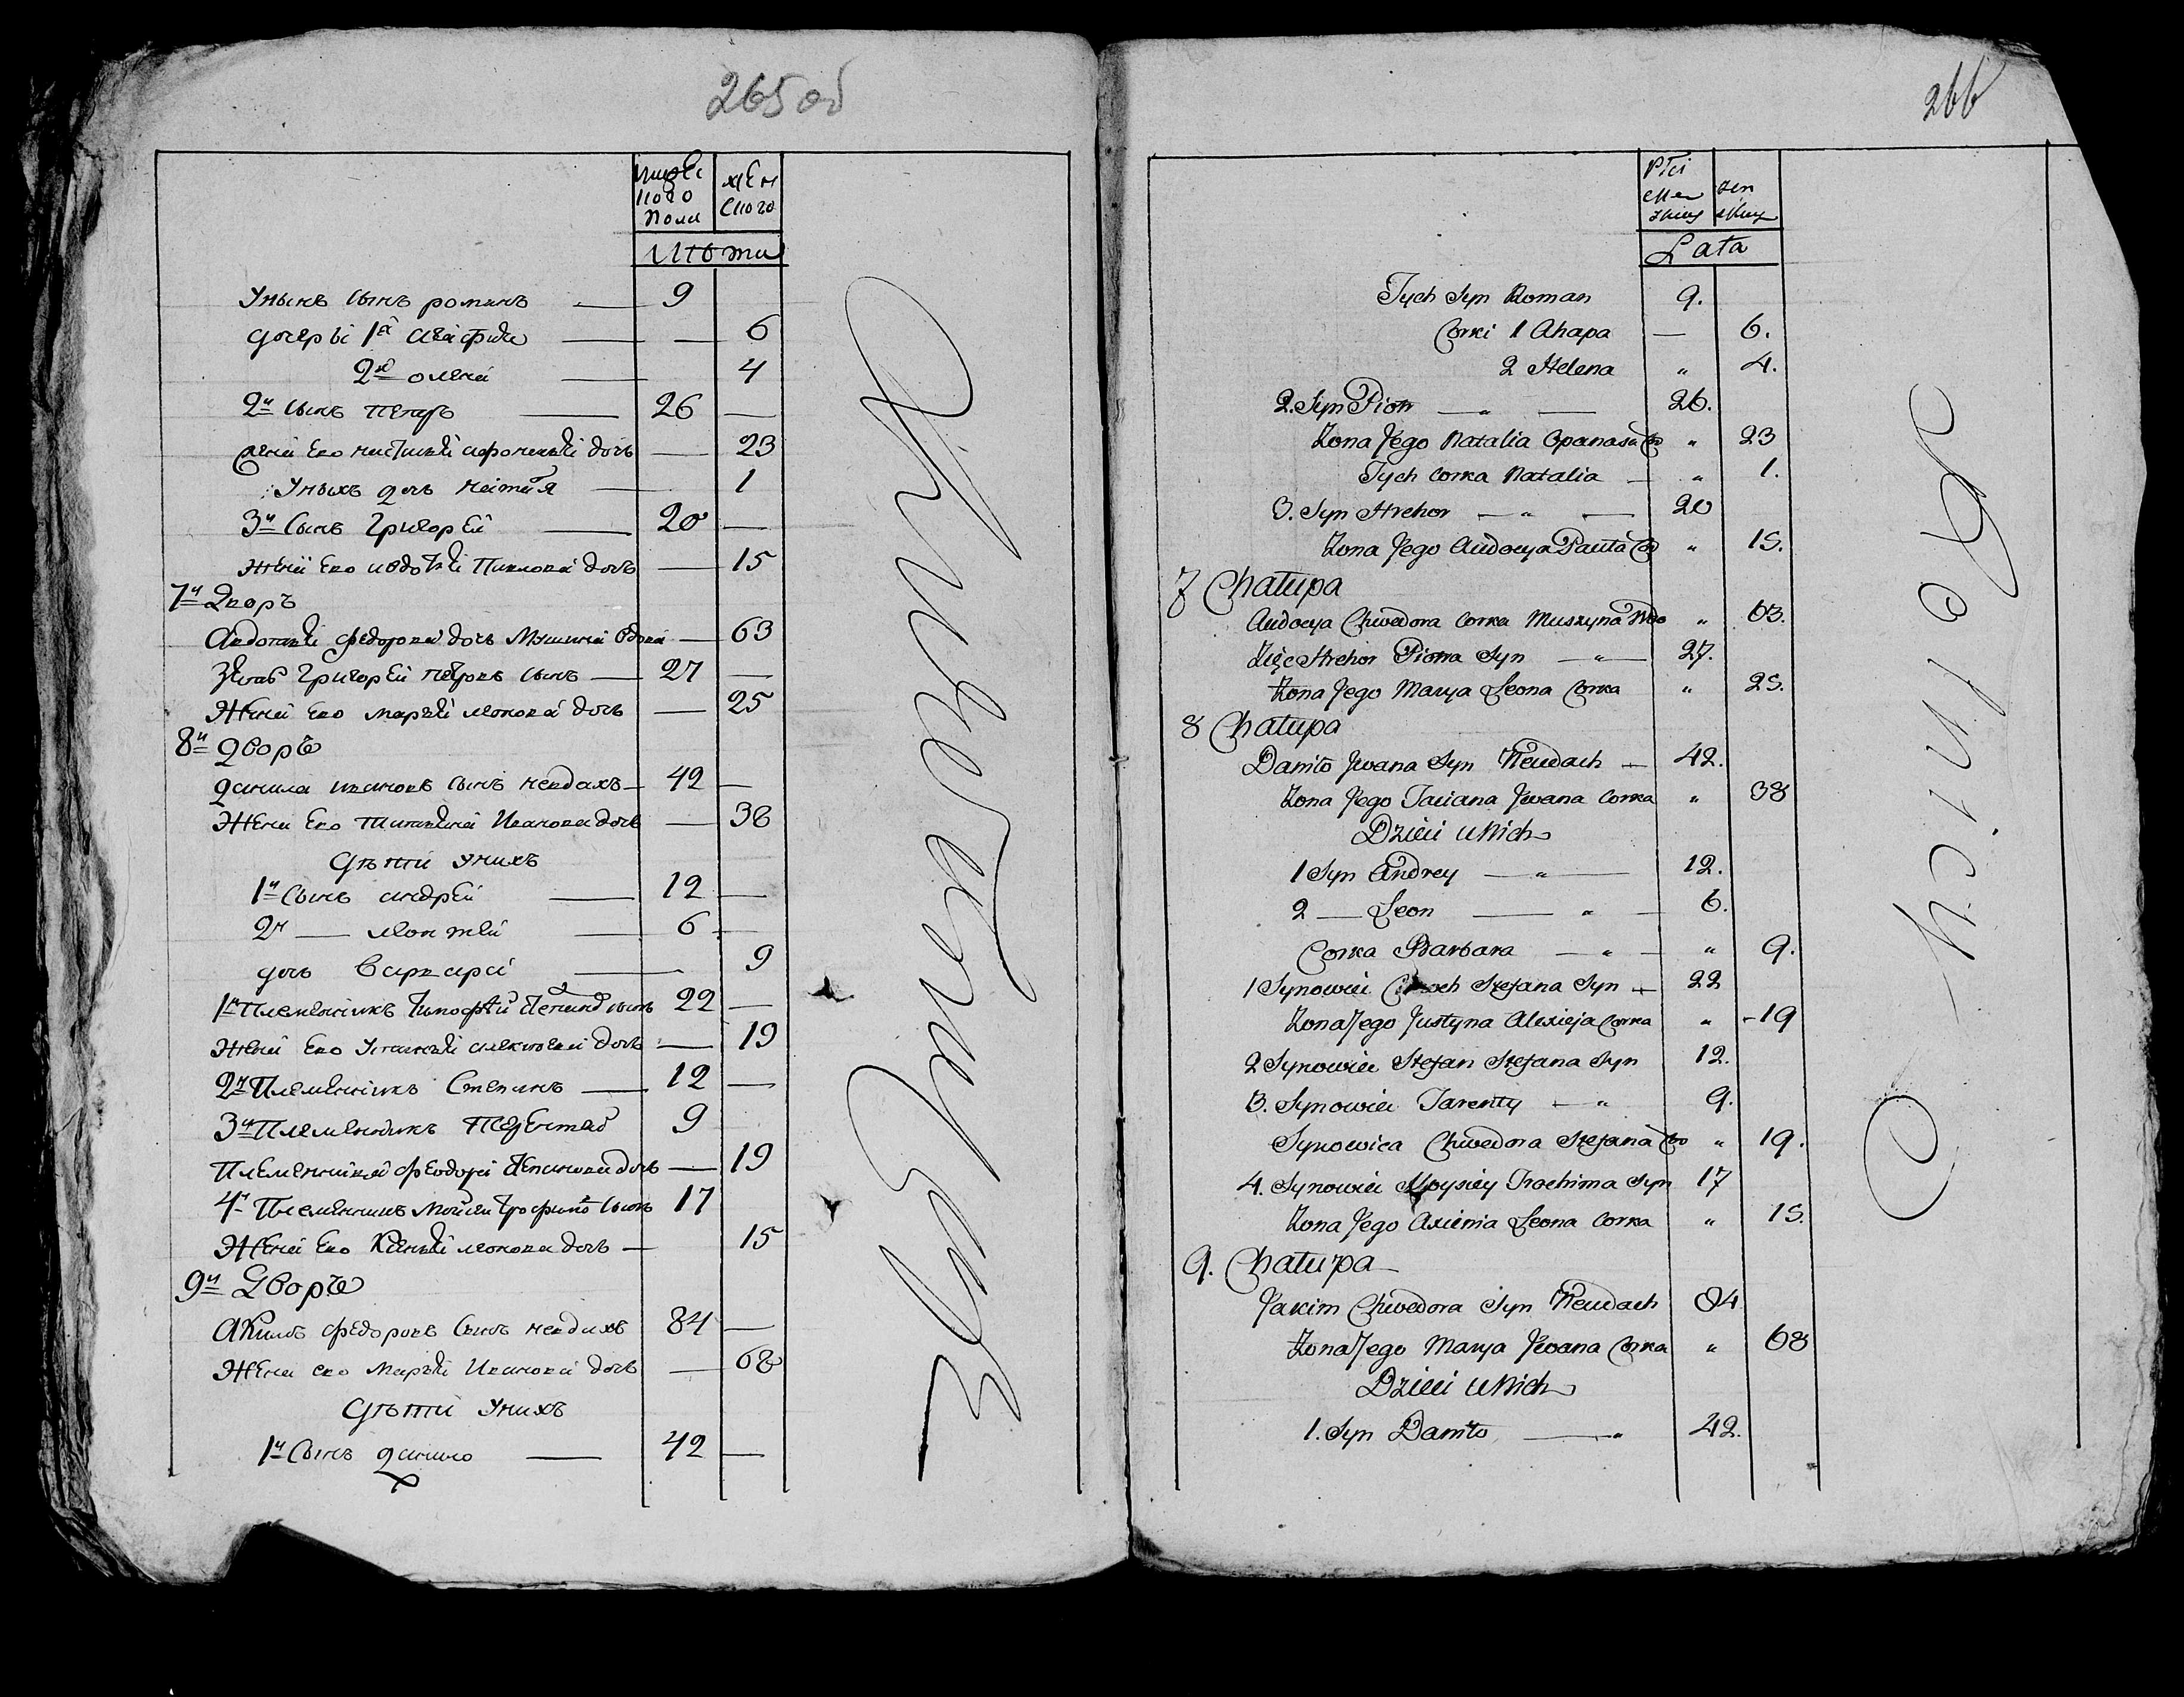 265 об
мужескаго пола
женскаго
лѣта
У ныхъ сынъ романъ — 9
дочери 1я агафия — 6
2я олена — 4
2й сынъ петръ — 26 —
жена его наталья афонасьва дочь — 23
У ныхъ дочь наталя — 1
3й сынъ григорей — 20 —
жена его авдотья Павлова дочь — 15
7й Дворъ
Авдотья федорова дочь Мушина вдова — 63
Зять григорей петровъ сынъ — 27 —
Жена его марья леонова дочь — 25
8й дворъ
данила ивановъ сынъ невдахъ — 42 —
Жена его татьяна Иванова дочь — 38
дѣти у нихъ
1й сынъ андрей — 12 —
2й — леонтей — 6 —
дочь варвара — 9
1й Племенникъ тимофей степановъ сынъ 22 —
жена его устинья алексеева дочь — 19
2й Племенникъ Степанъ — 12 —
3й Племенникъ терентей 9
Племенница феодора степанова дочь — 19
4й Племенникъ мойсей трофимовъ сынъ 17
Жена его Ксенья леонова дочь — 15
9й Дворъ
Акимъ федоровъ сынъ невдахъ 84 —
Жена его марья Иванова дочь — 68
дѣти у нихъ
1й Сынъ данило — 42 —
266
Płci męzkiey
żeńskiey
Lata
Tych Syn Roman 9.
Corki 1 Ahapa — 6.
2 Helena „ 4.
2. Syn Piotr — „ — 26.
Zona Jego Natalia Opanasa Co „ 23
Tych Corka Natalia — „ 1.
3. Syn Hrehor — „ — 20
Zona Jego Audocya Pawła Co „ 15.
7 Chałupa
Audocya Chwedora Corka Muszyna Wdo „ 63.
Zięć Hrehor Piotra Syn — „ — 27.
Zona Jego Marya Leona Corka „ 25.
8 Chałupa
Daniło Jwana Syn Neudach — 42.
Zona Jego Taciana Jwana Corka „ 38
Dzieci u Nich
1 Syn Andrey — „ — 12.
2 — Leon — „ — 6.
Corka Barbara — „ — „ 9.
1 Synowiec Stefana Syn — 22
Zona Jego Justyna Alexieja Corka „ - 19
2 Synowiec Stefan Stefana Syn 12.
3. Synowiec Tarenty — „ 9.
Synowica Chwedora Stefana Co „ 19.
4. Synowiec Moysiey Trochima Syn 17
Zona Jego Axienia Leona Corka „ 15.
9. Chałupa
Jakim Chwedora Syn Neudach 84
Zona Jego Marya Jwana Corka „ 68
Dzieci u Nich
1. Syn Daniło — „ 42.